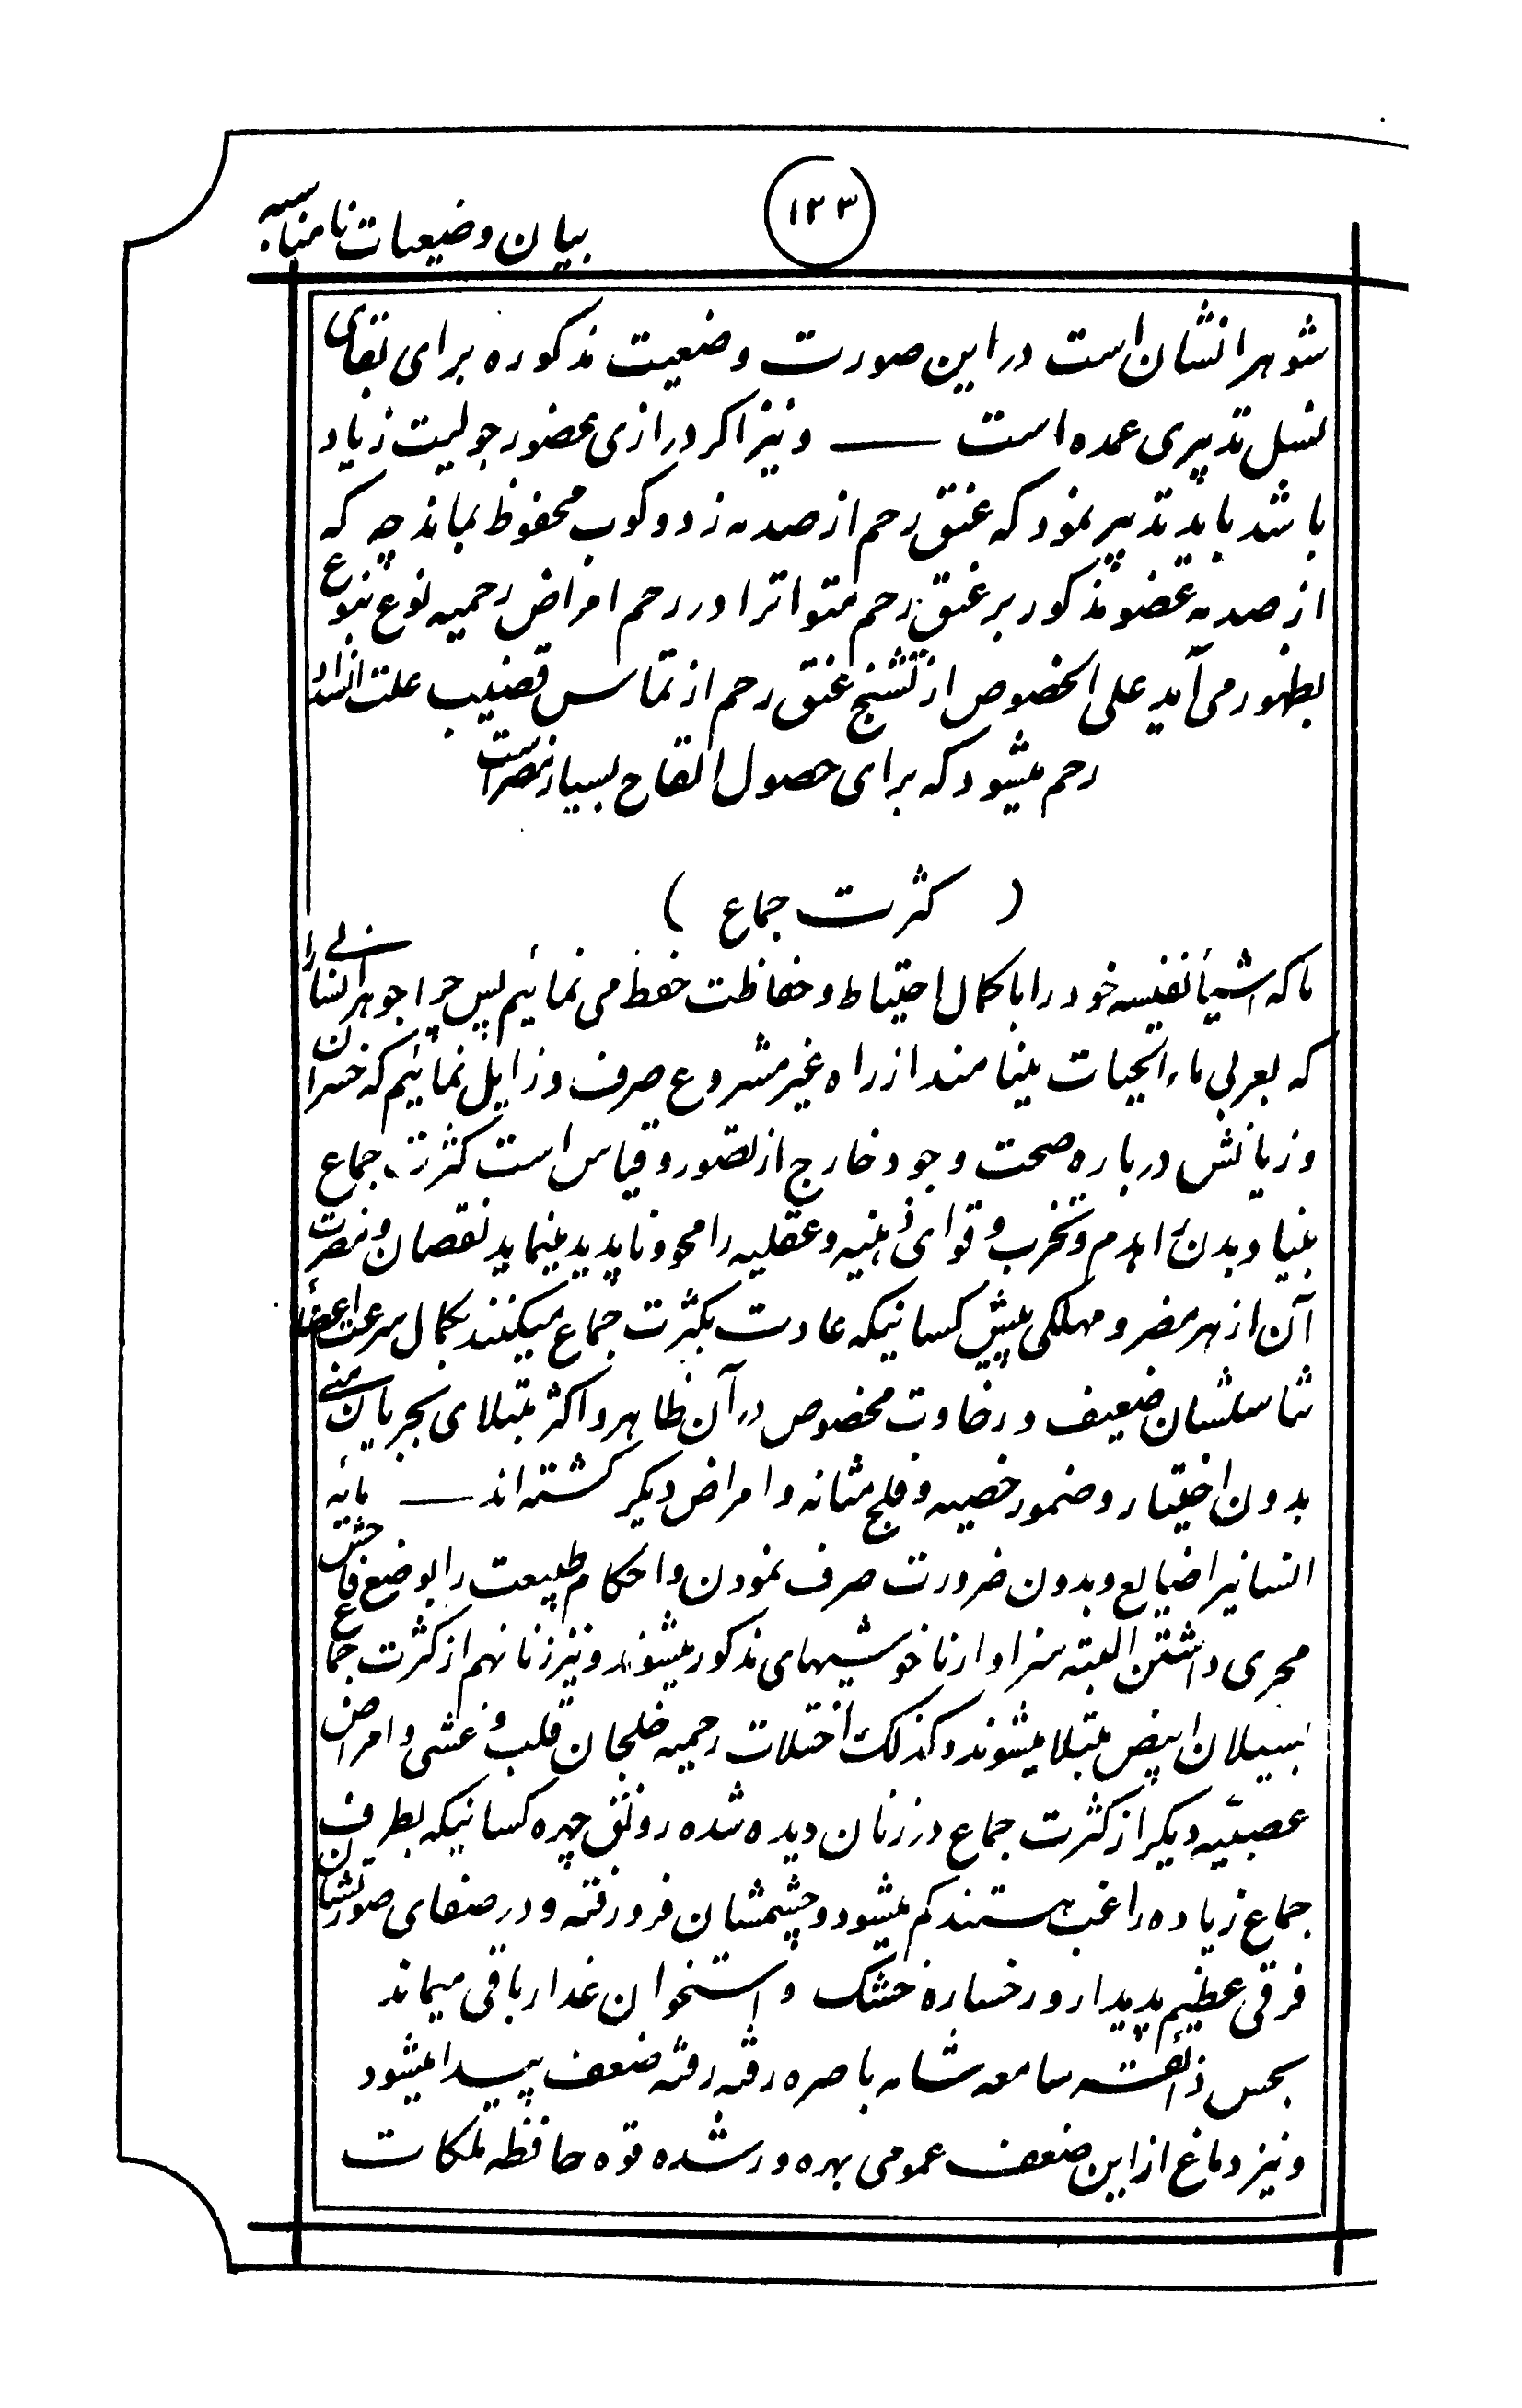 بیان وضعیات نامناسبه
۱۲۳
شوهرانشان است در این صورت وضعیت مذکوره برای بقای
نسل تدبیری عمده است — و نیز اگر درازی عضو رجولیت زیاد
باشد باید تدبیر نمود که عنق رحم از صدمه زد و کوب محفوظ بماند چه که
از صدمه عضو مذکور بر عنق رحم متواترا در رحم امراض رحمیه نوع بنوع
بظهور می آید علی الخصوص از تشنج عنق رحم از تماس قضیب علت انسداد
رحم میشود که برای حصول القاح بسیار مضر است
( کثرت جماع )
ما که اشیأ نفیسه خود را با کمال احتیاط و حفاظت حفظ می نمائیم پس چرا جوهر انسانی را
که بعربی ماء الحیات مینامند از راه غیر مشروع صرف و زایل نمائیم که خسران
و زیانش درباره صحت وجود خارج از تصور و قیاس است کثرت جماع
بنیاد بدن اهدم و تخرب و قوای ذهنیه و عقلیه را محو و ناپدید مینماید نقصان و مضرت
آن از هر مضر و مهلکی بیش کسانیکه عادت بکثرت جماع میکنند بکمال سرعت اعضأ
تناسلشان ضعیف و رخاوت مخصوص در آن ظاهر و اکثر مبتلای بجریان منی
بدون اختیار و ضمور خصیه و فلج مثانه و امراض دیگر گشته اند — مایه
انسانیرا ضایع و بدون ضرورت صرف نمودن و احکام طبیعت را بوضع فاحش
مجری داشتن البته سزاوار ناخوشیهای مذکور میشوند و نیز زنانهم از کثرت جماع
بسیلان ابیض مبتلا میشوند و کذلک اختلات رحمیه خلجان قلب و غشی و امراض
عصبیّه دیگر از کثرت جماع در زنان دیده شده رونق چهره کسانیکه بطرف
جماع زیاده راغب هستند کم میشود و چشمشان فرو رفته و در صفای صورتشان
فرقی عظیم پدیدار و رخساره خشک و استخوان غدار باقی میماند
بحس ذائقه سامعه شامه باصره رفته رفته ضعف پیدا میشود
و نیز دماغ از این ضعف عمومی بهره ور شده قوه حافظه ملکات